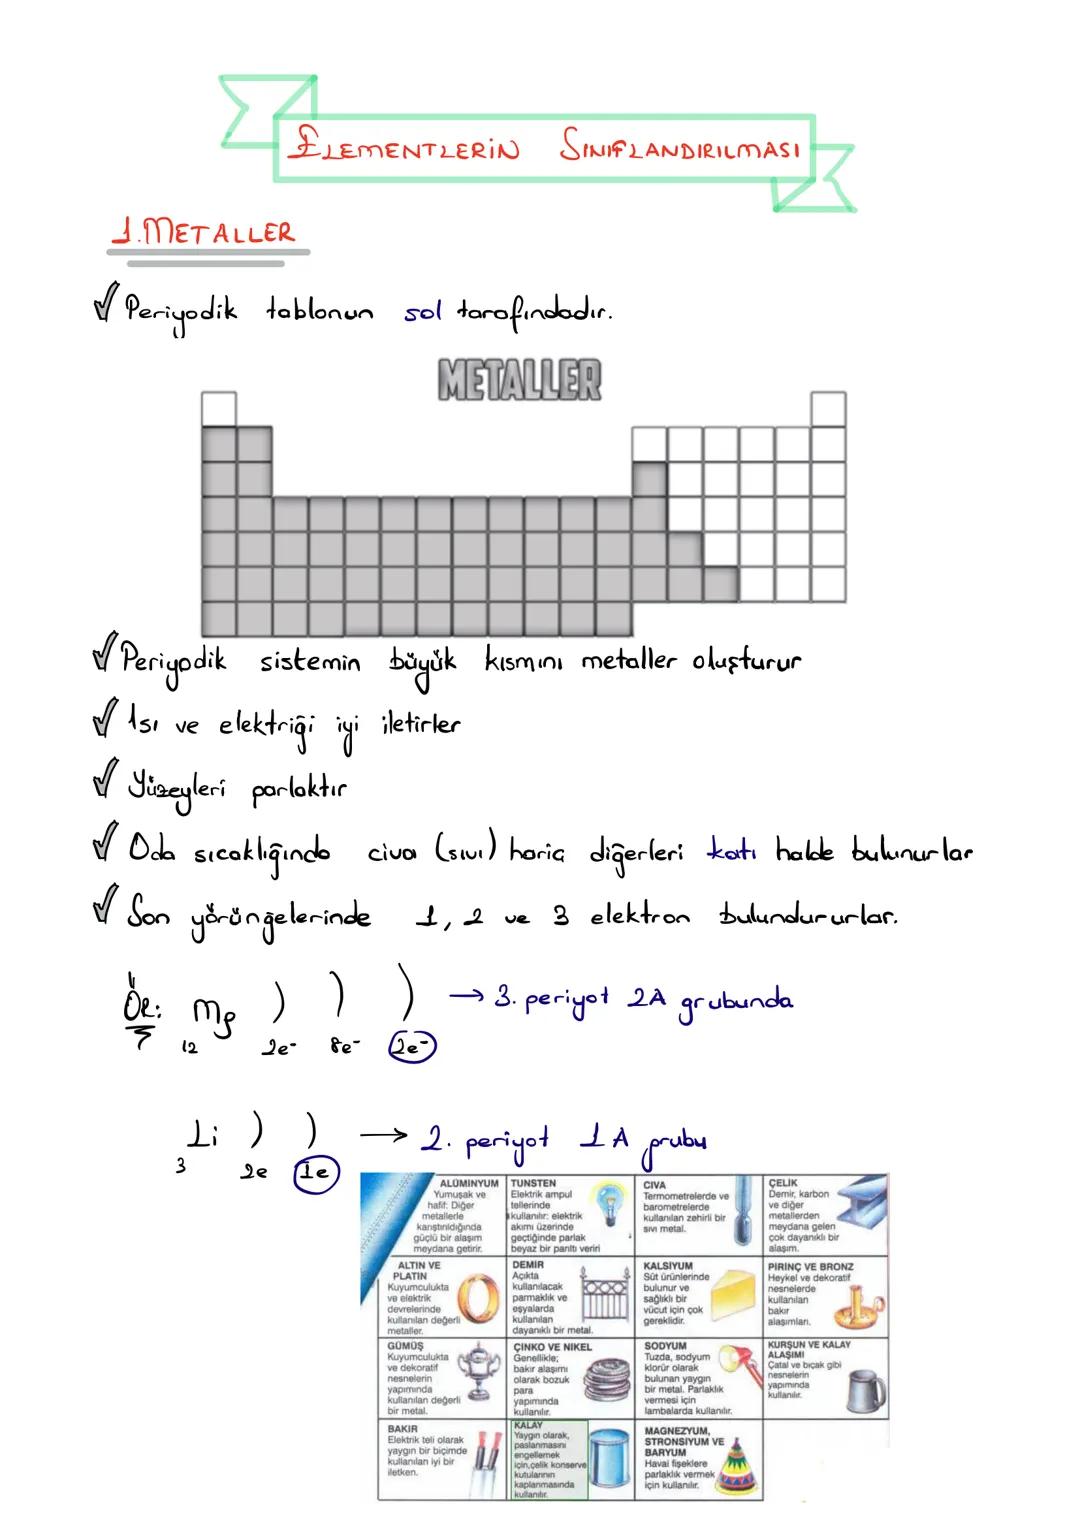 ELEMENTLERİN SINIFLANDIRILMASI
1.METALLER
Periyodik tablonun sol tarafındadır.
METALLER
Periyodik sistemin büyük kısmını metaller oluşturur
Isı ve elektriği iyi iletirler
Yüzeyleri parlaktır
Oda sıcaklığında civa (sıvı) hariç diğerleri katı halde bulunurlar
Son yörüngelerinde 1, 2 ve 3 elektron bulundururlar.
ÖR: Mg ) ) ) → 3. periyot 2A grubunda
12 2e- 8e- 2e-
Li ) ) → 2. periyot 1A grubu
3 2e 1e
ALÜMİNYUM
Yumuşak ve
hafif: Diğer
metallerle
karıştırıldığında
güçlü bir alaşım
meydana getirir.
TUNSTEN
Elektrik ampul
tellerinde
kullanılır: elektrik
akımı üzerinde
geçtiğinde parlak
beyaz bir parıltı veriri
CIVA
Termometrelerde ve
barometrelerde
kullanılan zehirli bir
sıvı metal.
ÇELİK
Demir, karbon
ve diğer
metallerden
meydana gelen
çok dayanıklı bir
alaşım.
ALTIN VE
PLATİN
Kuyumculukta
ve elektrik
devrelerinde
kullanılan değerli
metaller.
DEMİR
Açıkta
kullanılacak
parmaklık ve
eşyalarda
kullanılan
dayanıklı bir metal.
KALSIYUM
Süt ürünlerinde
bulunur ve
sağlıklı bir
vücut için çok
gereklidir.
PIRINÇ VE BRONZ
Heykel ve dekoratif
nesnelerde
kullanılan
bakır
alaşımları.
GÜMÜŞ
Kuyumculukta
ve dekoratif
nesnelerin
yapımında
kullanılan değerli
bir metal.
ÇINKO VE NIKEL
Genellikle;
bakır alaşımı
olarak bozuk
para
yapımında
kullanılır.
SODYUM
Tuzda, sodyum
klorür olarak
bulunan yaygın
bir metal. Parlaklık
vermesi için
lambalarda kullanılır.
KURŞUN VE KALAY
ALAŞIMI
Çatal ve bıçak gibi
nesnelerin
yapımında
kullanılır.
BAKIR
Elektrik teli olarak
yaygın bir biçimde
kullanılan iyi bir
iletken.
KALAY
Yaygın olarak,
paslanmasını
engellemek
için,çelik konserve
kutularının
kaplanmasında
kullanılır.
MAGNEZYUM,
STRONSIYUM VE
BARYUM
Havai fişeklere
parlaklık vermek
için kullanılır.